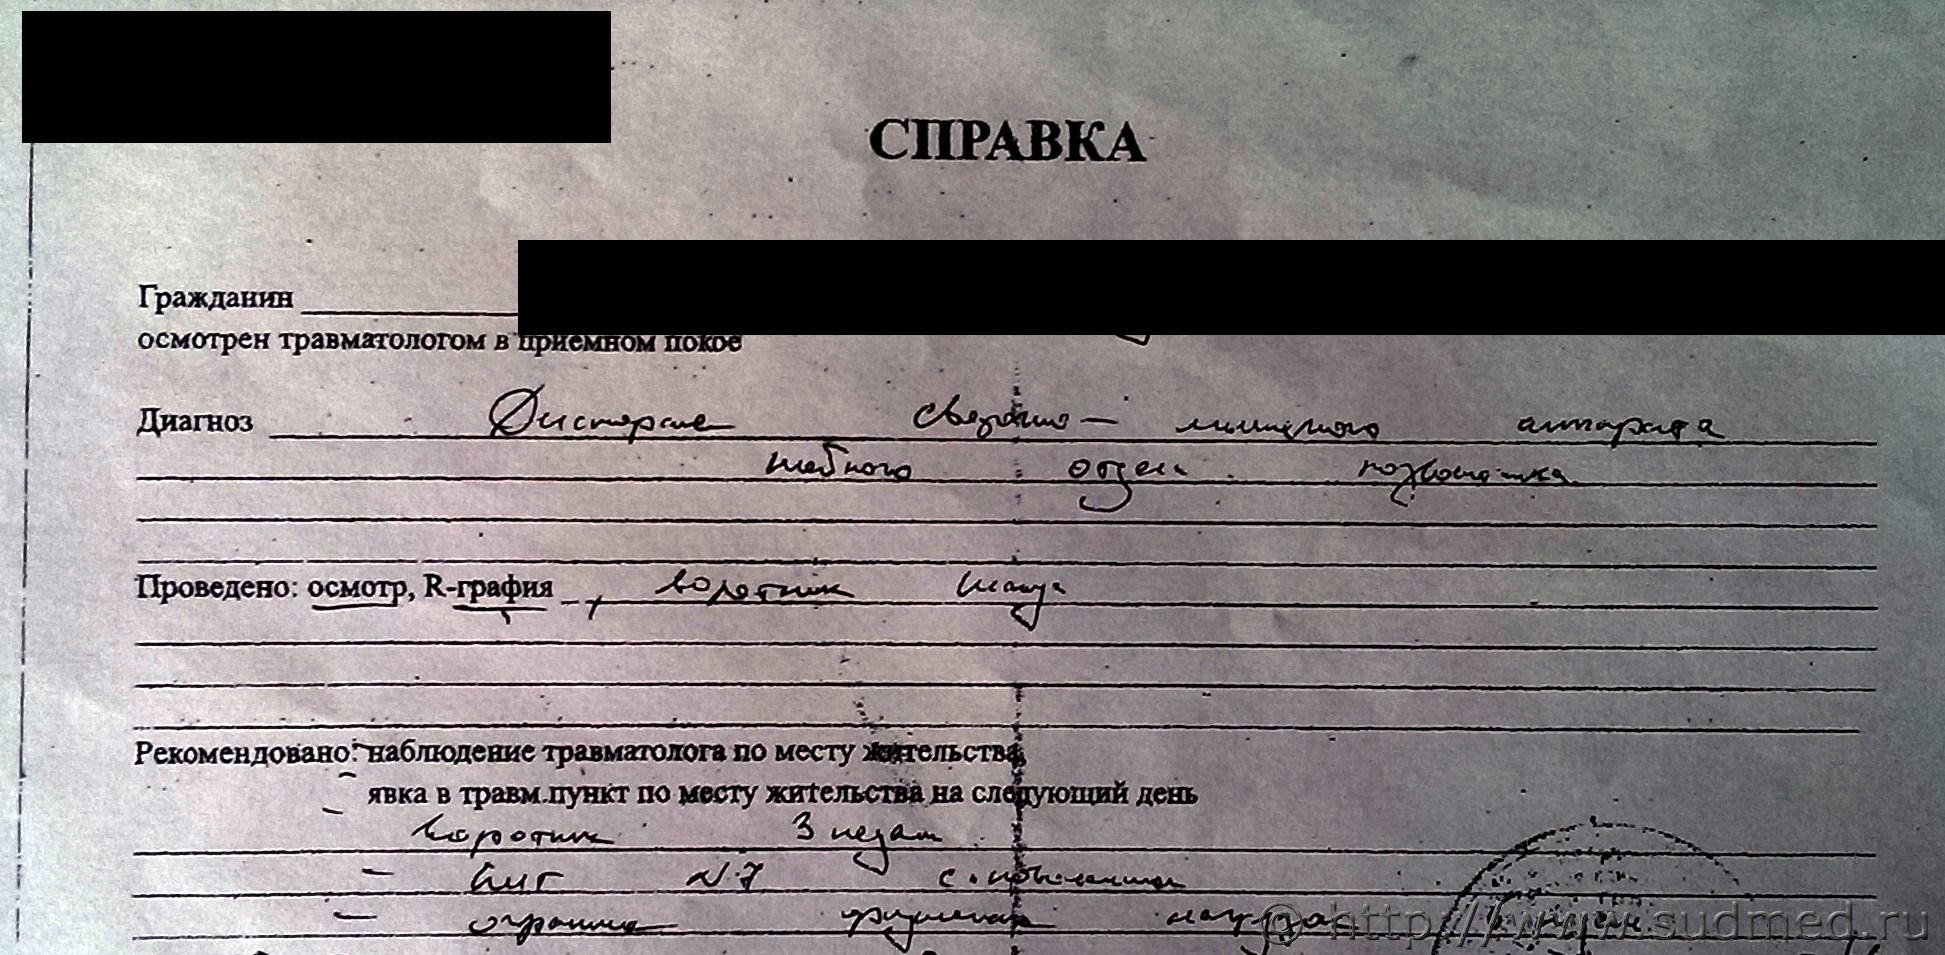 СПРАВКА
Гражданин
осмотрен травматологом в приемном покое
Диагноз Дисторсия связочно - мышечного аппарата
шейного отдела позвоночника
Проведено: осмотр, R-графия, воротник Шанца
Рекомендовано: наблюдение травматолога по месту жительства,
явка в травм.пункт по месту жительства на следующий день
- Воротник 3 недели
- №7
- ограничение физических нагрузок
© http://www.sudmed.ru